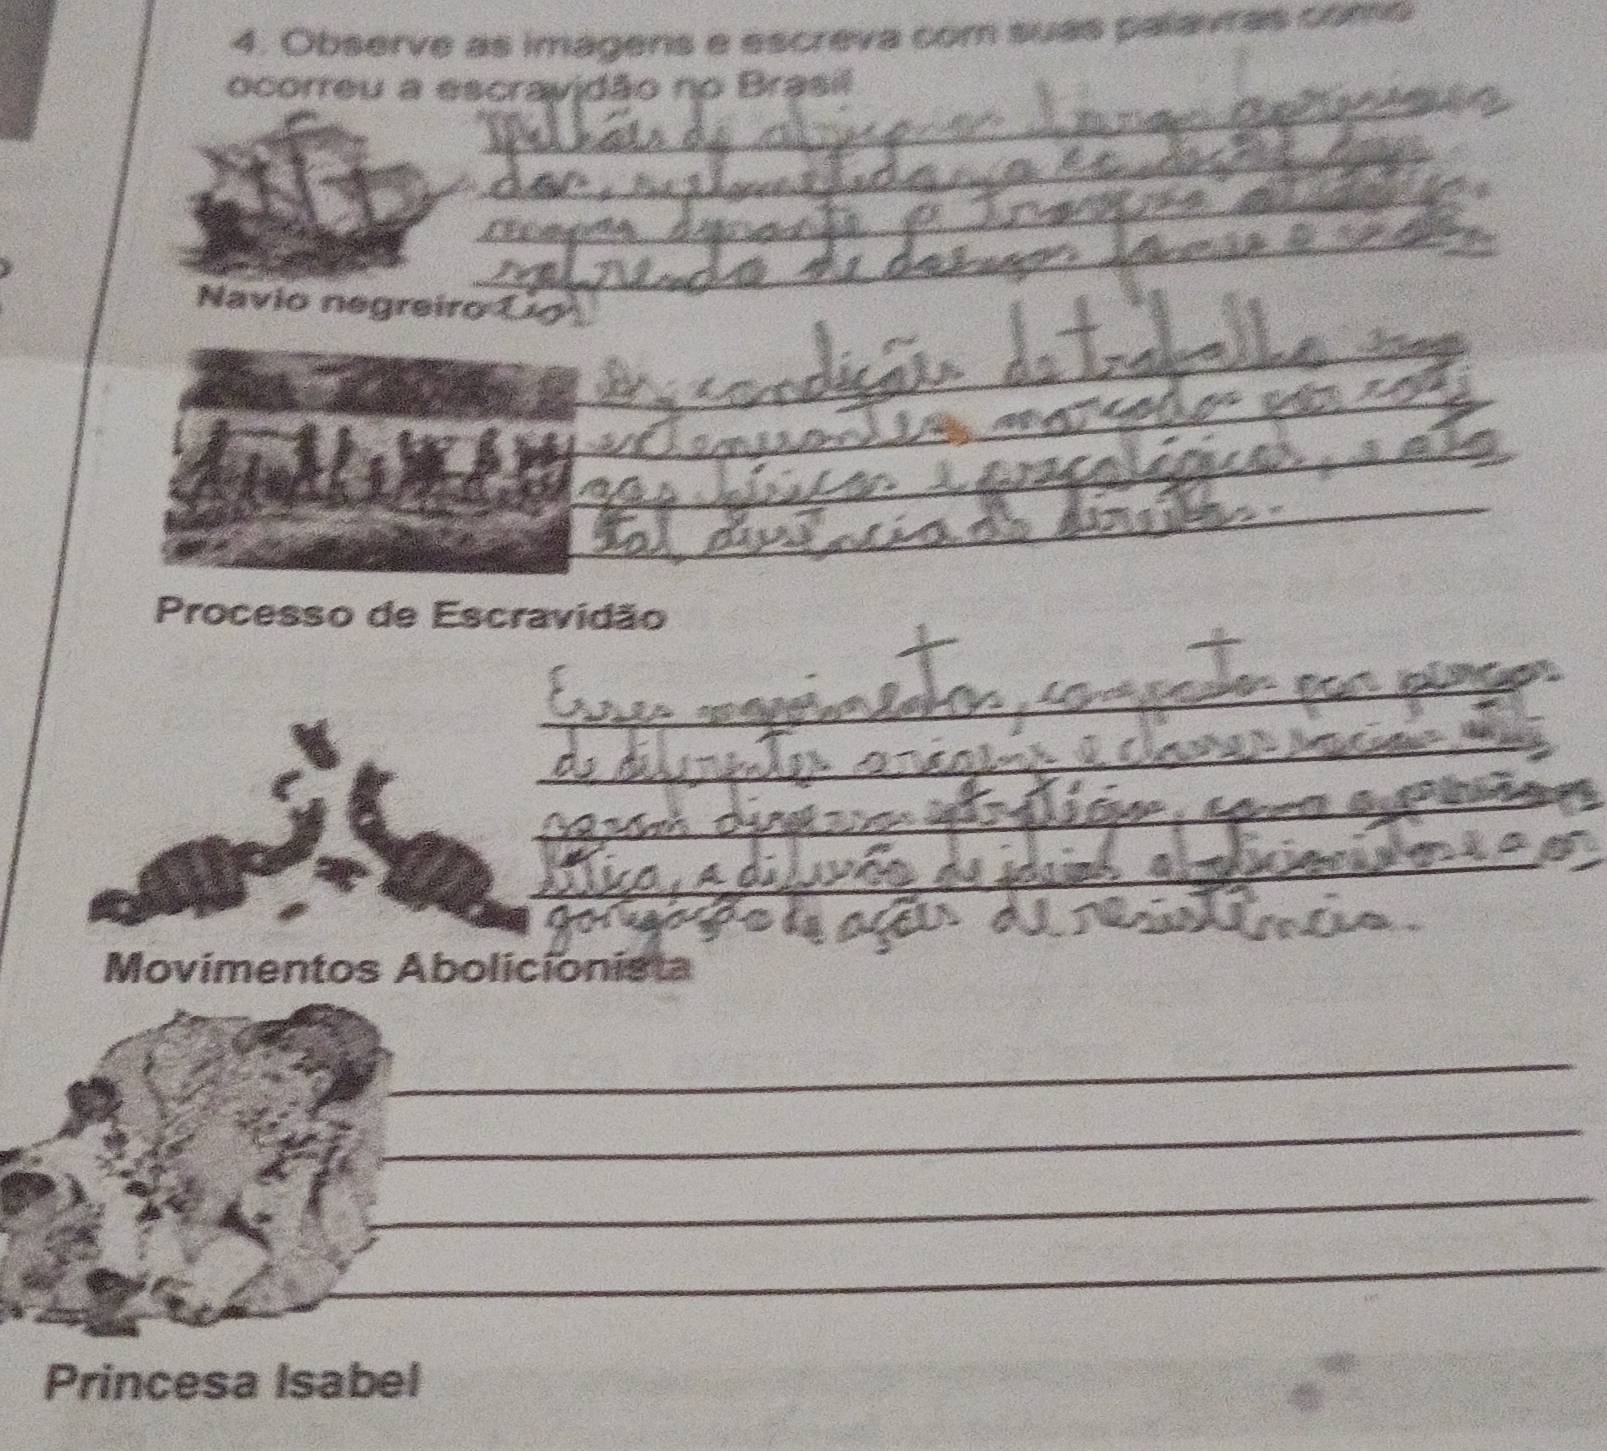 4. Observe as imagens e escreva com suas palavras como
ocorreu a escravidão no Brasil
Milhões de africanos foram aprisiona
dos, submetidos a
durante a
de doenças fome e
Navio negreiro
As condições de trabalho
extenuantes, marcados por casti
gos físicos e psicológicos, e a to
tal de direitos.
Processo de Escravidão
Esses movimentos, compostos por pessoas
de diferentes origens e classes sociais
diversas estratégias, como a
lítica, a difusão de ideias abolicionistas e a or
de ações de resistência.
Movimentos Abolicionista
Princesa Isabel